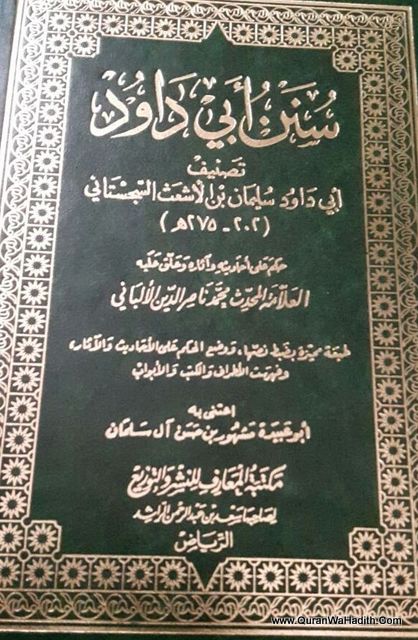 سُنَن أَبِي دَاوُد
تَصنيف
أبي دَاود سُليمان بن الأشعَث السِّجِستاني
(٢٠٢ - ٢٧٥ هـ)
حكم على أحاديثه وآثاره وعلّق عليه
العلّامة المحدّث محمّد ناصر الدّين الألباني
طبعة مميزة بضبط نصها، ووضع الحكم على الأحاديث والآثار،
وفهرست الأطراف والكتب والأبواب
اعتنى به
أبو عبيدة مشهور بن حسن آل سلمان
مكتبة المعارف للنشر والتوزيع
لصاحبها سعد بن عبد الرحمن الراشد
الريَاض
www.QuranWaHadith.Com